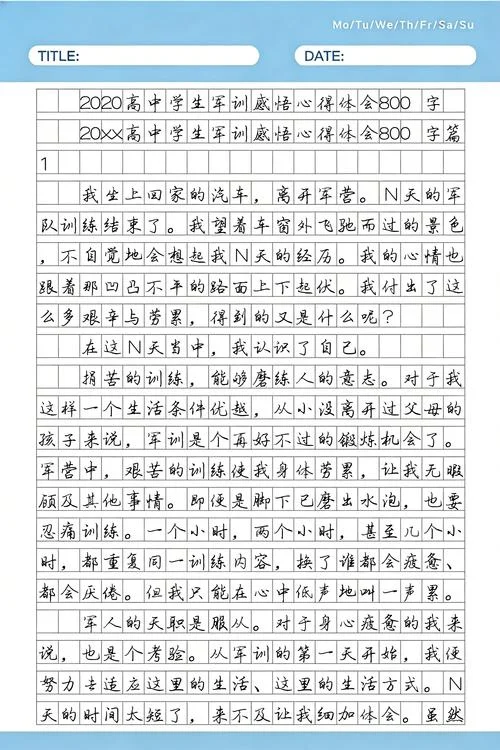 Mo/Tu/We/Th/Fr/Sa/Su
TITLE:
DATE:
2020高中学生军训感悟心得体会800 字
20xx高中学生军训感悟心得体会800 字篇
1
我坐上回家的汽车，离开军营。N天的军
队训练结束了。我望着车窗外飞驰而过的景色
，不自觉地会想起我N天的经历。我的心情也
跟着那凹凸不平的路面上下起伏。我付出了这
么多艰辛与劳累，得到的又是什么呢？
在这N天当中，我认识了自己。
捐苦的训练，能够磨练人的意志。对于我
这样一个生活条件优越，从小没离开过父母的
孩子来说，军训是个再好不过的锻炼机会了。
军营中，艰苦的训练使我身体劳累，让我无暇
顾及其他事情。即便是脚下已磨出水泡，也要
忍痛训练。一个小时，两个小时，甚至几个小
时，都重复同一训练内容，换了谁都会疲惫、
都会厌倦。但我只能在心中低声地叫一声累。
军人的天职是服从。对于身心疲惫的我来
说，也是个考验。从军训的第一天开始，我便
努力去适应这里的生活、这里的生活方式。N
天的时间太短了，来不及让我细加体会。虽然